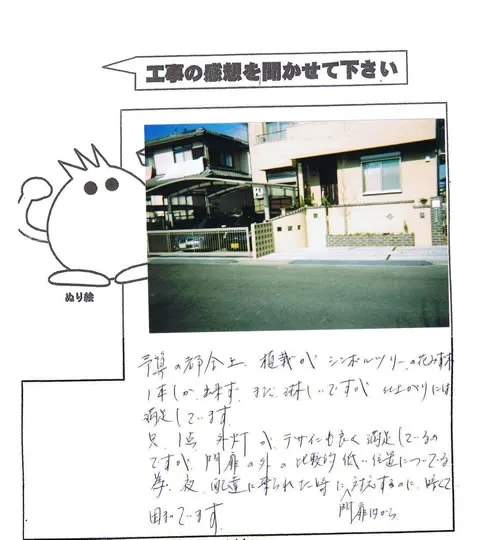 工事の感想を聞かせて下さい
ぬり絵
予算の都合上、植栽が シンボルツリーの花みずき
1本しか出来ず、まだ淋しいですが 仕上がりには
満足しています。
只、1点 外灯が、デザインも良く満足しているの
ですが、門扉の外の比較的低い位置についている
為、夜、配達に来られた時に対応するのに、暗くて
門扉は
困っています。